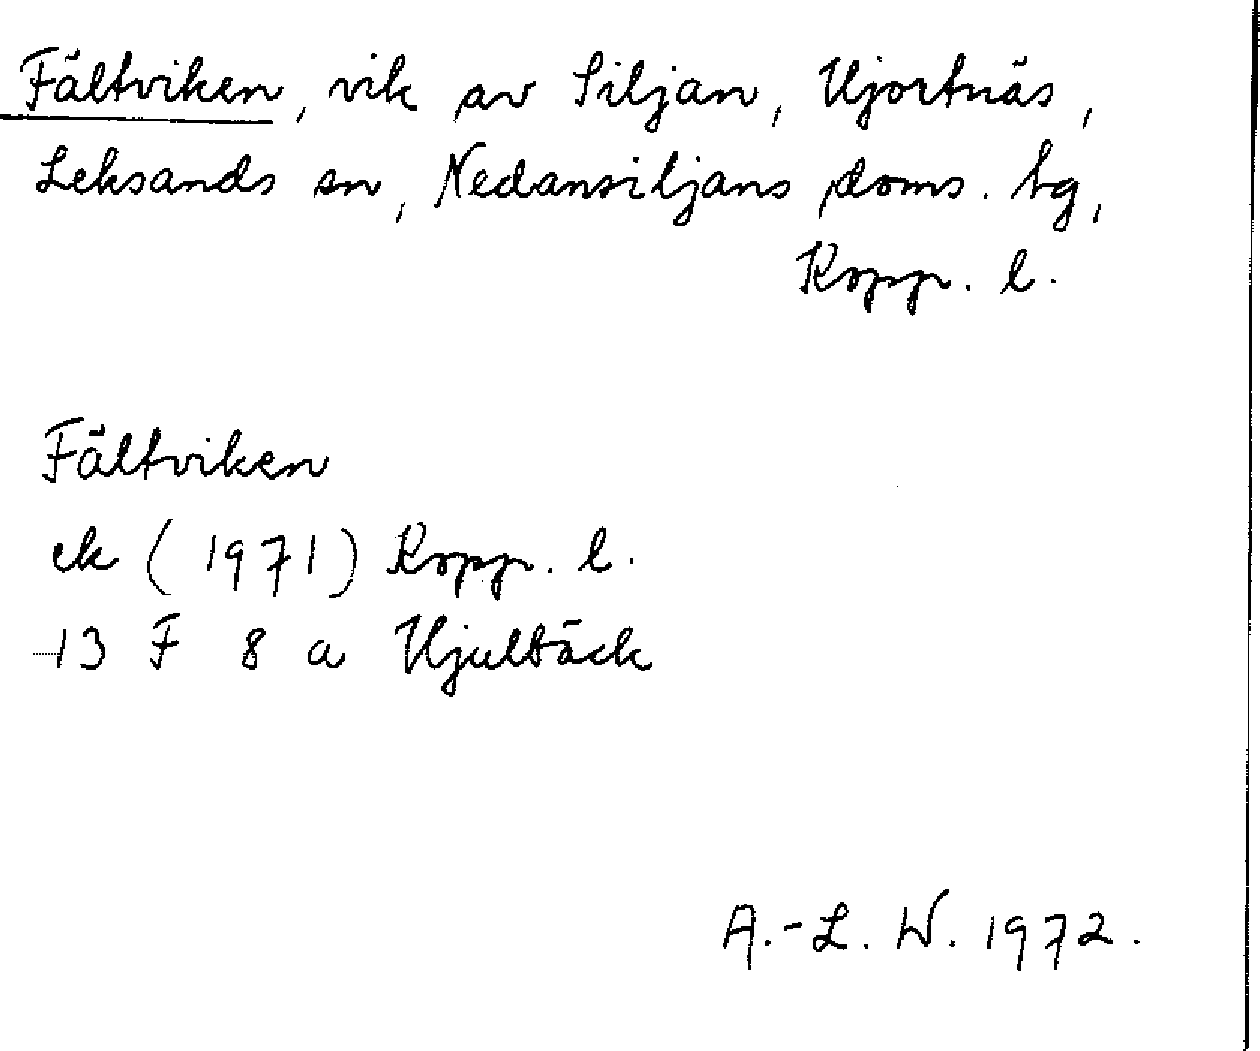 Fältviken, vik av Siljan, Hjortnäs,
Leksands sn, Nedansiljans doms. tg,
Kopp. l.
Fältviken
ek (1971) Kopp. l.
13 F 8 a Hjulbäck
A.-L. W. 1972.